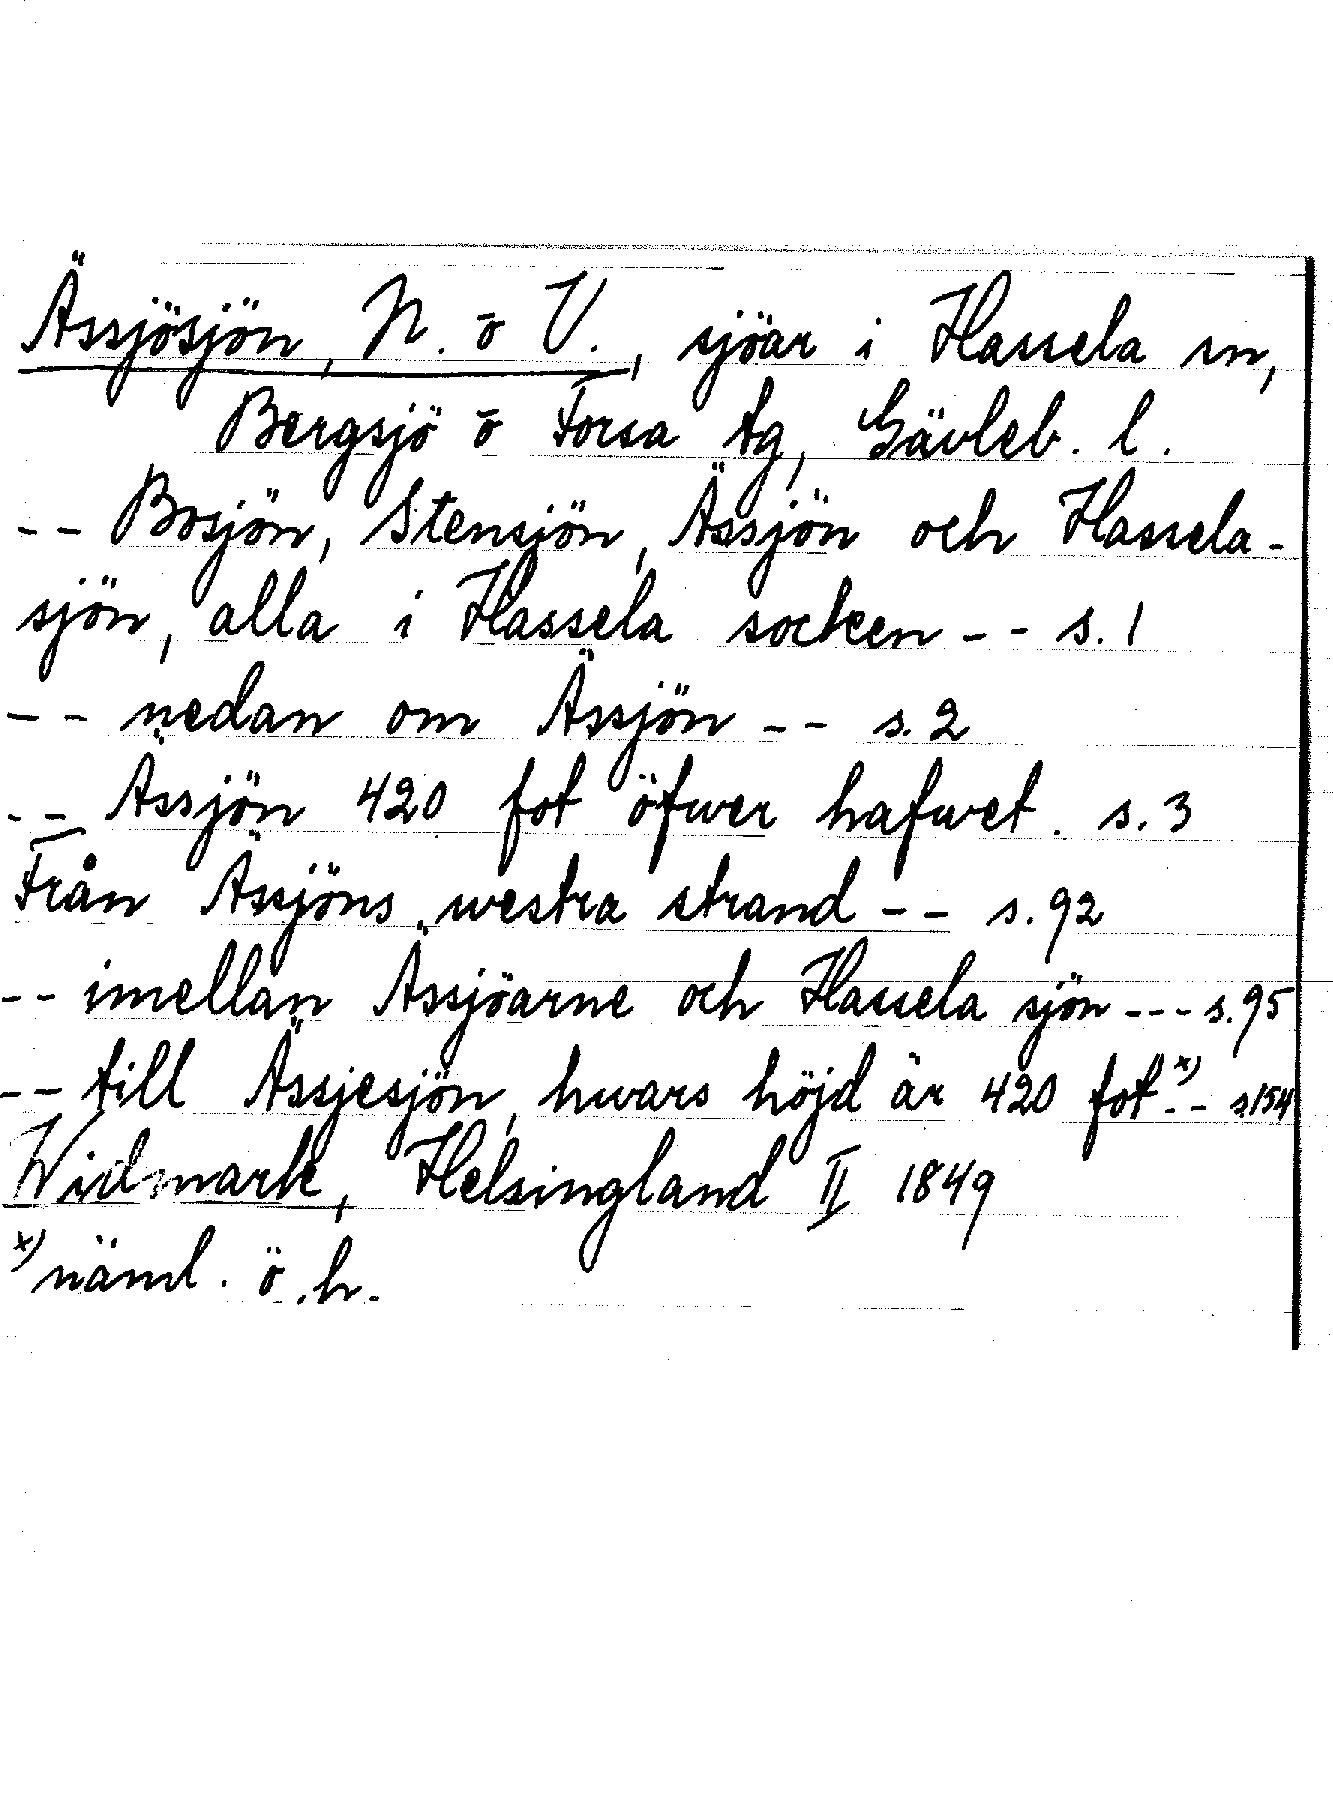 Ässjösjön, N. o̅ V., sjöar i Hassela sn,
Bergsjö o̅ Forsa tg, Gävleb. l.
-- Bosjön, Stensjön, Ässjön och Hassela-
sjön, alla i Hassela socken -- s. 1
-- nedan om Ässjön -- s. 2
-- Ässjön 420 fot öfwer hafwet. s. 3
Från Ässjöns westra strand -- s. 92
-- imellan Ässjöarne och Hassela sjön --- s. 95
-- till Ässjesjön, hwars höjd är 420 fot x) -- s 154
Widmark, Helsingland II 1849
x) näml. ö.h.